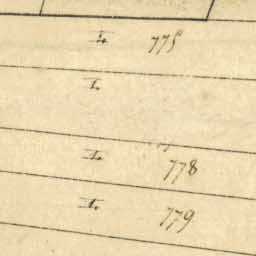 I. 775
I.
I. 778
I. 779